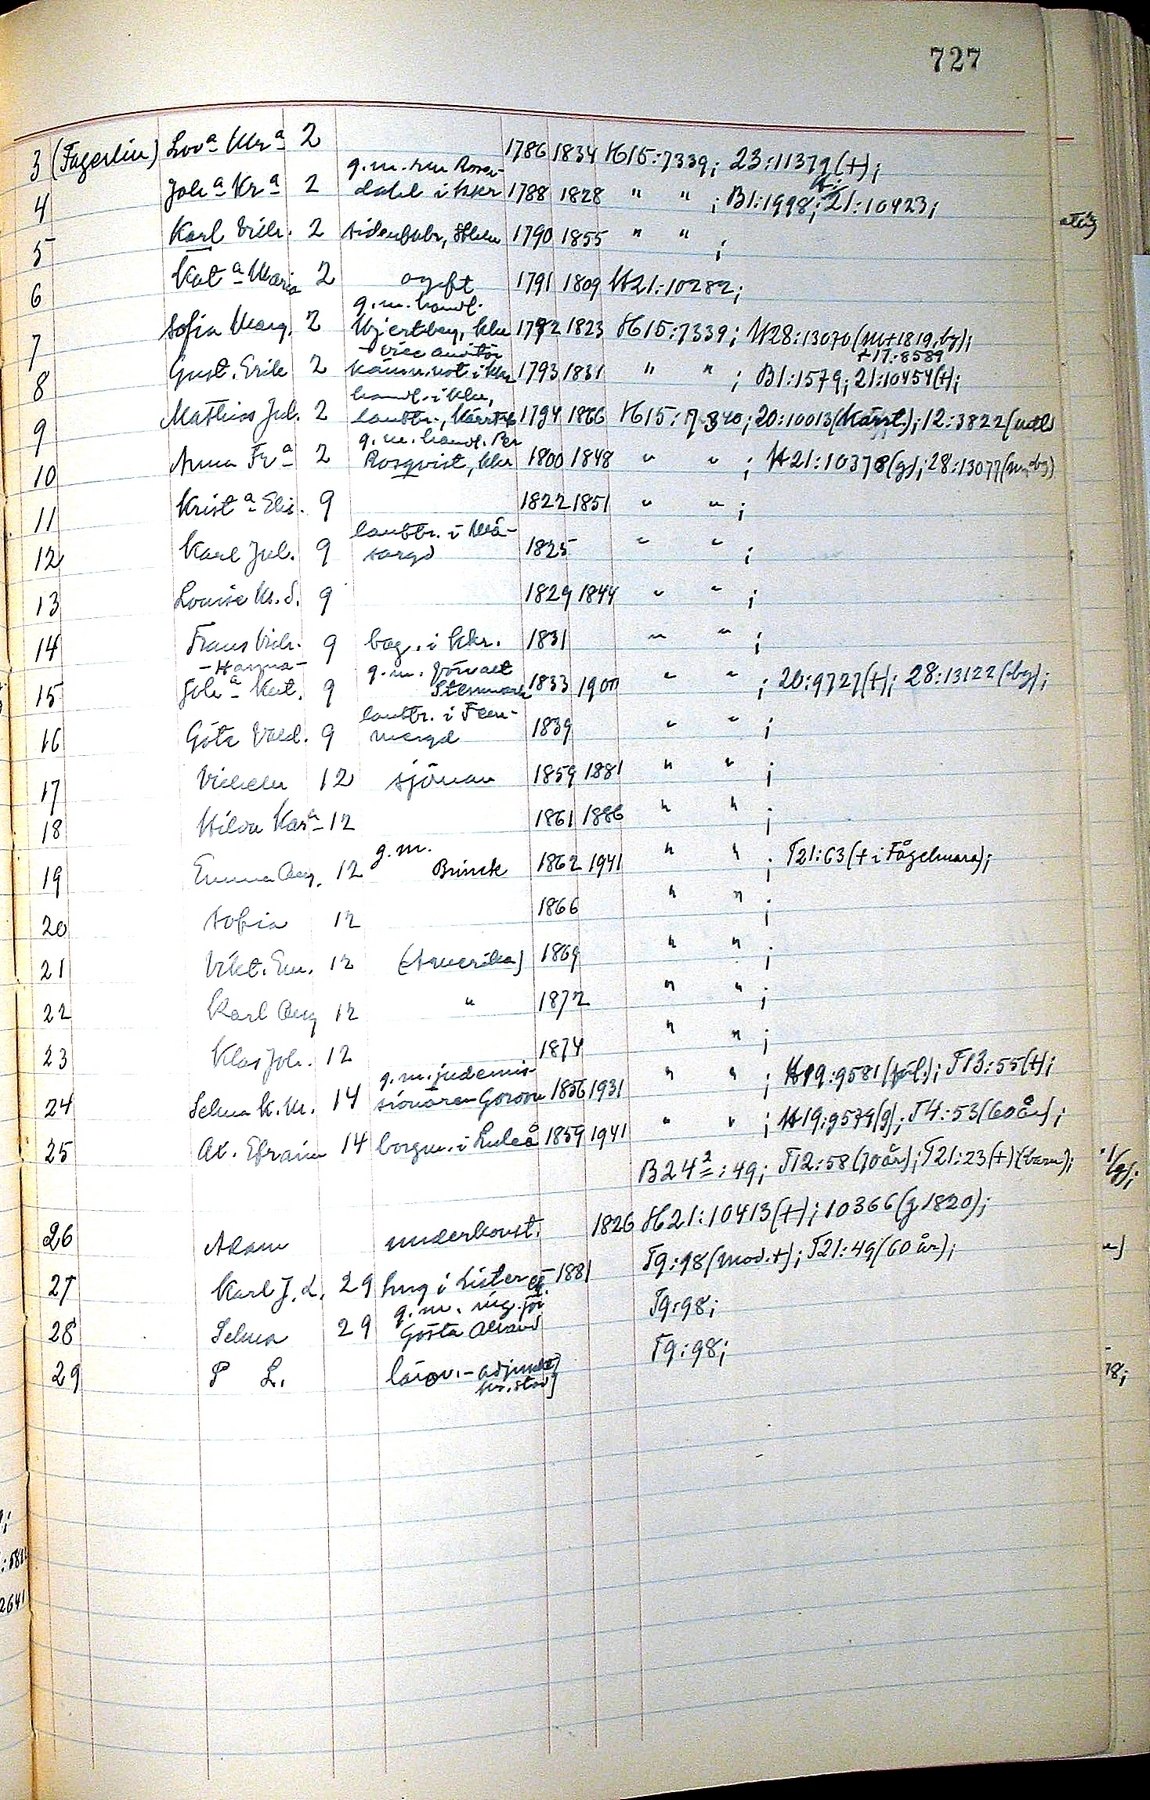 727
3 (Fagerlin) Lovª Urª 2 1786 1834 H15:7339; 23:11379(+);
4 Johª Krª 2 g.m. Rosen-
dahl i kkr 1788 1828 " " ; B1:1998; 21:10423;
5 Karl Vilh. 2 sidenfabr, Sthlm 1790 1855 " " ;
6 Katª Maria 2 ogift 1791 1809 H21:10282;
7 Sofia Marg. 2 g.m. handl.
Hjertberg, kkr 1792 1823 H15:7339; H28:13070(m+1819, bg);
+17:8589
8 Gust. Erik 2 vice auditör
kämn.not. i kkr 1793 1831 " " ; B1:1579; 21:10454(+);
9 Mathias Jul. 2 handl. i kkr,
lantbr., 1794 1866 H15:7340; 20:10013(Kärrt.); 12:3822(
10 Anna Frª 2 g.m. handl. Per
Rosqvist, kkr 1800 1848 " " ; H21:10378(g); 28:13077(
11 Kristª Elis. 9 1822 1851 " " ;
12 Karl Jul. 9 lantbr. i Må-
sargd 1825 " " ;
13 Louise M.S. 9 1829 1844 " " ;
14 Frans Vilh. 9 bag. i kkr. 1831 " " ;
15 -Hanna-
Johª Kat. 9 g.m. förvalt
Stenmark 1833 1900 " " ; 20:9727(+); 28:13122(bg);
16 Göta Vald. 9 lantbr. i Fem-
1839 " " ;
17 Vilhelm 12 sjöman 1859 1881 " " ;
18 Hilda Karª 12 1861 1886 " " ;
19 Emma Aug. 12 g.m.
Brinck 1862 1941 " " ; T21:63(+ i Fågelmara);
20 Sofia 12 1866 " " ;
21 Vikt. Em. 12 (Amerika) 1869 " " ;
22 Karl Aug 12 " 1872 " " ;
23 Klas Joh. 12 1874 " " ;
24 Selma K.M. 14 g.m. judemis-
sionären Gordon 1856 1931 " " ; H19:9581(förl.); T13:55(+);
25 At. Efraim 14 borgm. i Luleå 1859 1941 " " ; H19:9579(g); T4:53(60 år);
B24²:49; T12:58(70 år); T21:23(+)(barn);
26 Adam underkonst. 1826 H21:10413(+); 10366(g 1820);
27 Karl J. L. 29 hmg i Lister 1881 T9:98(mod.+); T21:49(60 år);
28 Selma 29 g.m. ing.
Gösta T9:98;
29 P L. lärov.-adjunkt
Kr.stad T9:98;